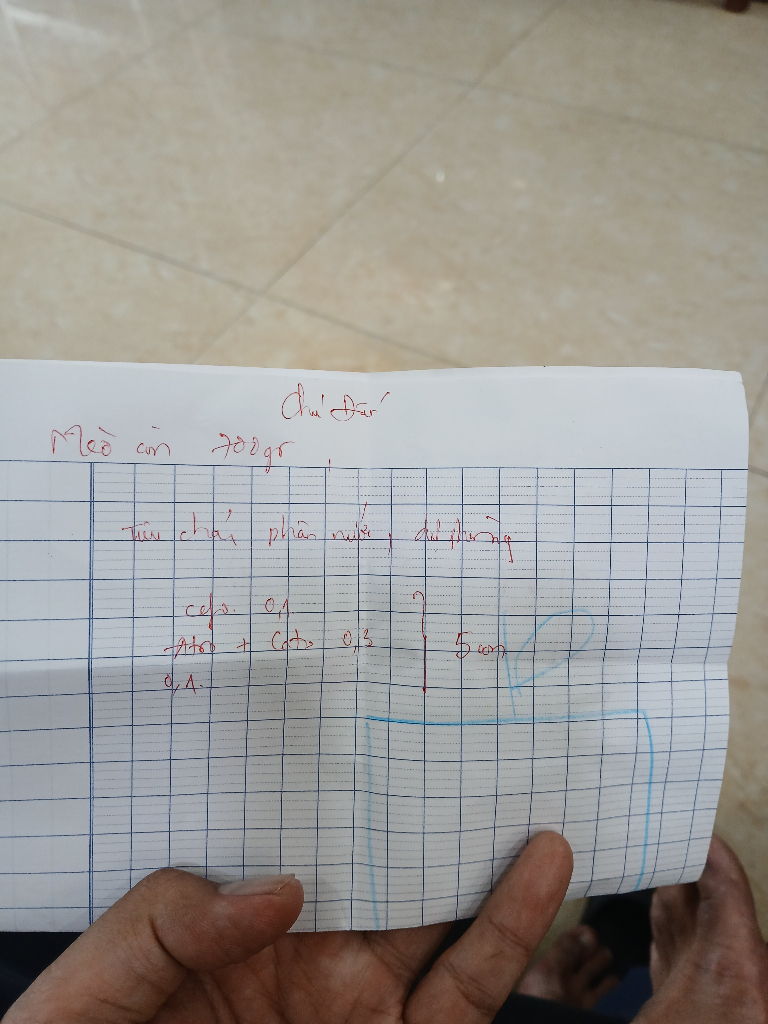 Chú Đấu
Mèo con 700gr
Tiêu chảy phân nước, dự phòng
cefo. 0,1
Atro + Cato 0,3
0,1.
5 con